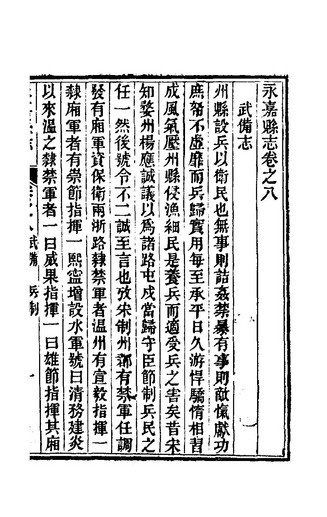 永嘉縣志卷之八
武備志
州縣設兵以衛民也無事則詰姦禁暴有事則敵愾獻功
庶帑不虛靡而兵歸實用每至承平日久游悍驕惰相習
成風氣壓州縣侵漁細民是養兵而適受兵之害矣昔宋
知婺州楊應誠議以為諸路屯戍當歸守臣節制兵民之
任一然後號令不二誠至言也攷宋制州郡有禁軍任調
發有廂軍資保衛兩浙路隸禁軍者溫州有宣毅指揮一
隸廂軍者有崇節指揮一熙寧增設水軍號曰清務建炎
以來溫之隸禁軍者一曰威果指揮一曰雄節指揮其廂
武備 兵制